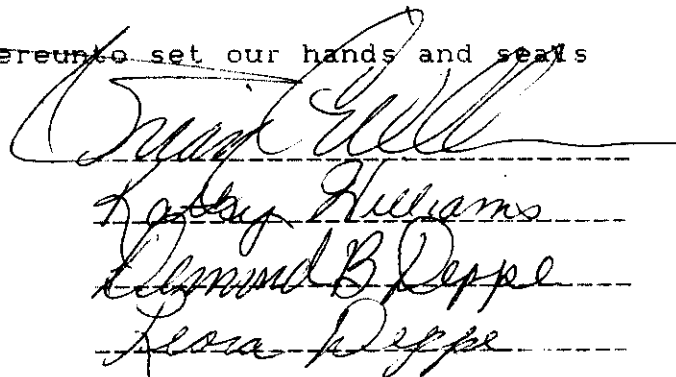 ereunto set our hands and seals
Kathy Williams
Desmond B Deppe
Leora Deppe